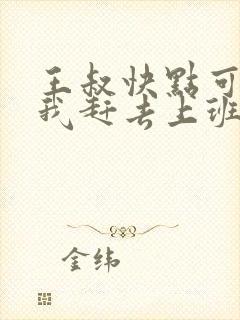 王叔快點可
我赶去上班
金纬